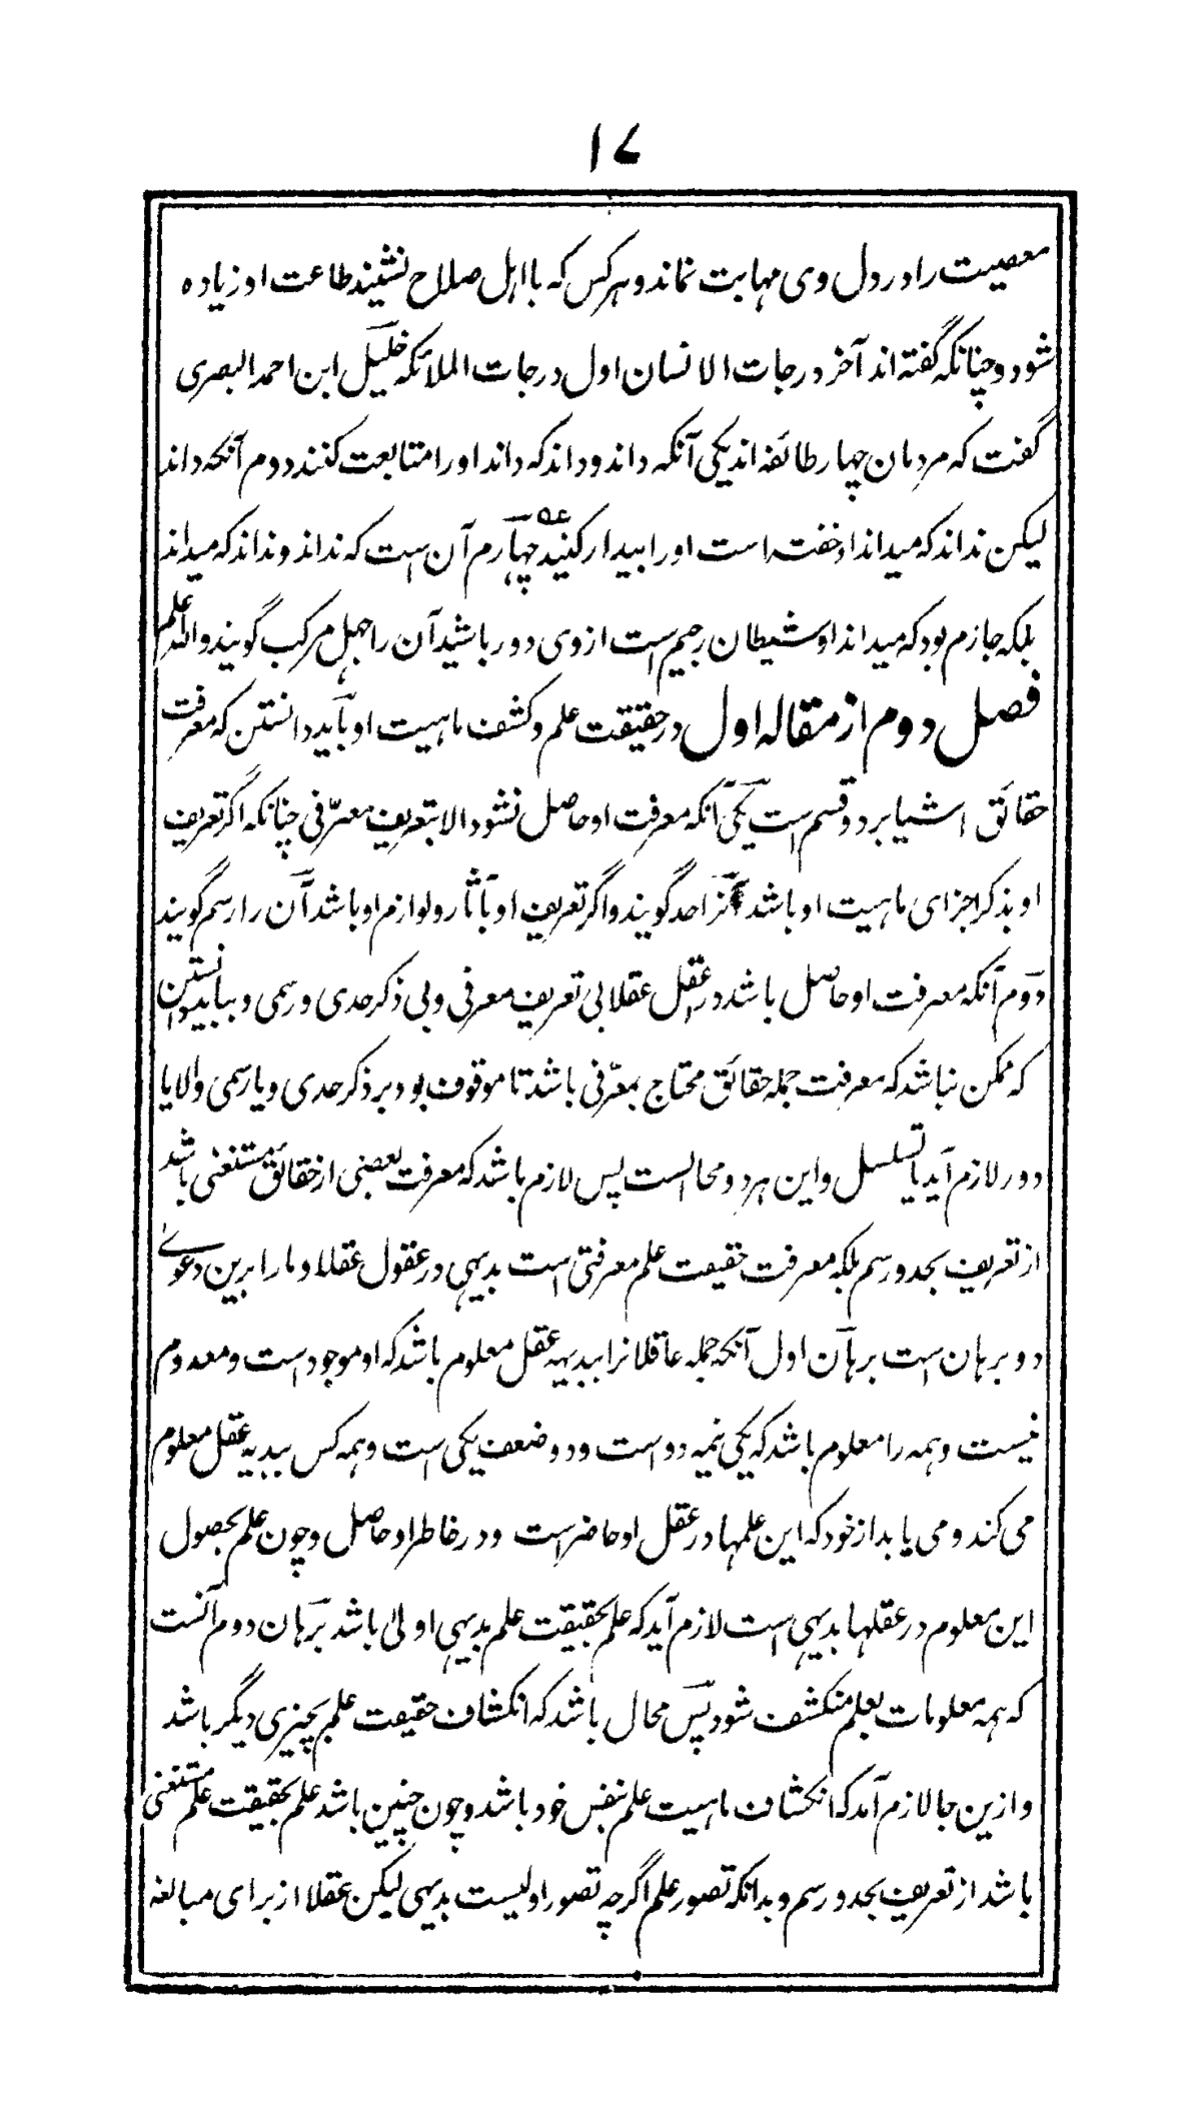 ۱۷
معصیت را در دل وی مهابت نماند و هرکس که با اهل صلاح نشیند طاعت او زیاده
شود و چنانکه گفته اند آخر درجات الانسان اول درجات الملائکه خلیل ابن احمد البصری
گفت که مردمان چهار طائفه اند یکی آنکه داند و داند که داند او را متابعت کنند دوم آنکه داند
لیکن نداند که میداند او خفته است او را بیدار کنید عـه چهارم آن است که نداند و نداند که میداند
بلکه جازم بود که میداند او شیطان رجیم است از وی دور باشید آن را جهل مرکب گویند والله اعلم
فصل دوم از مقاله اول در حقیقت علم و کشف ماهیت او باید دانستن که معرفت
حقائق اشیا بر دو قسم است یکی آنکه معرفت او حاصل نشود الا بتعریف معرّفی چنانکه اگر تعریف
او بذکر اجزای ماهیت او باشد آنرا حد گویند و اگر تعریف او بآثار و لوازم او باشد آن را رسم گویند
دوم آنکه معرفت او حاصل باشد در عقل عقلا بی تعریف معرفی و بی ذکر حدی و رسمی و بباید دانستن
که ممکن نباشد که معرفت جمله حقائق محتاج بمعرّفی باشد تا موقوف بود بر ذکر حدی و یا رسمی والا یا
دور لازم آید یا تسلسل و این هر دو محالست پس لازم باشد که معرفت بعضی از حقائق مستغنی باشد
از تعریف بحد و رسم بلکه معرفت حقیقت علم معرفتی است بدیهی در عقول عقلا و ما را برین دعوے
دو برهان است برهان اول آنکه جمله عاقلانرا ببدیهه عقل معلوم باشد که او موجود است و معدوم
نیست و همه را معلوم باشد که یکی نیمه دو است و دو ضعف یکی است و همه کس ببدیهه عقل معلوم
می کند و می یابد از خود که این علمها در عقل او حاضر است و در خاطر او حاصل و چون علم بحصول
این معلوم در عقلها بدیهی است لازم آید که علم بحقیقت علم بدیهی اولیٰ باشد برهان دوم آنست
که همه معلومات بعلم منکشف شود پس محال باشد که انکشاف حقیقت علم بچیزی دیگر باشد
و ازین جا لازم آمد که انکشاف ماهیت علم بنفس خود باشد و چون چنین باشد علم بحقیقت علم مستغنی
باشد از تعریف بحد و رسم و بدانکه تصور علم اگرچه تصور اولیست بدیهی لیکن عقلا از برای مبالغه